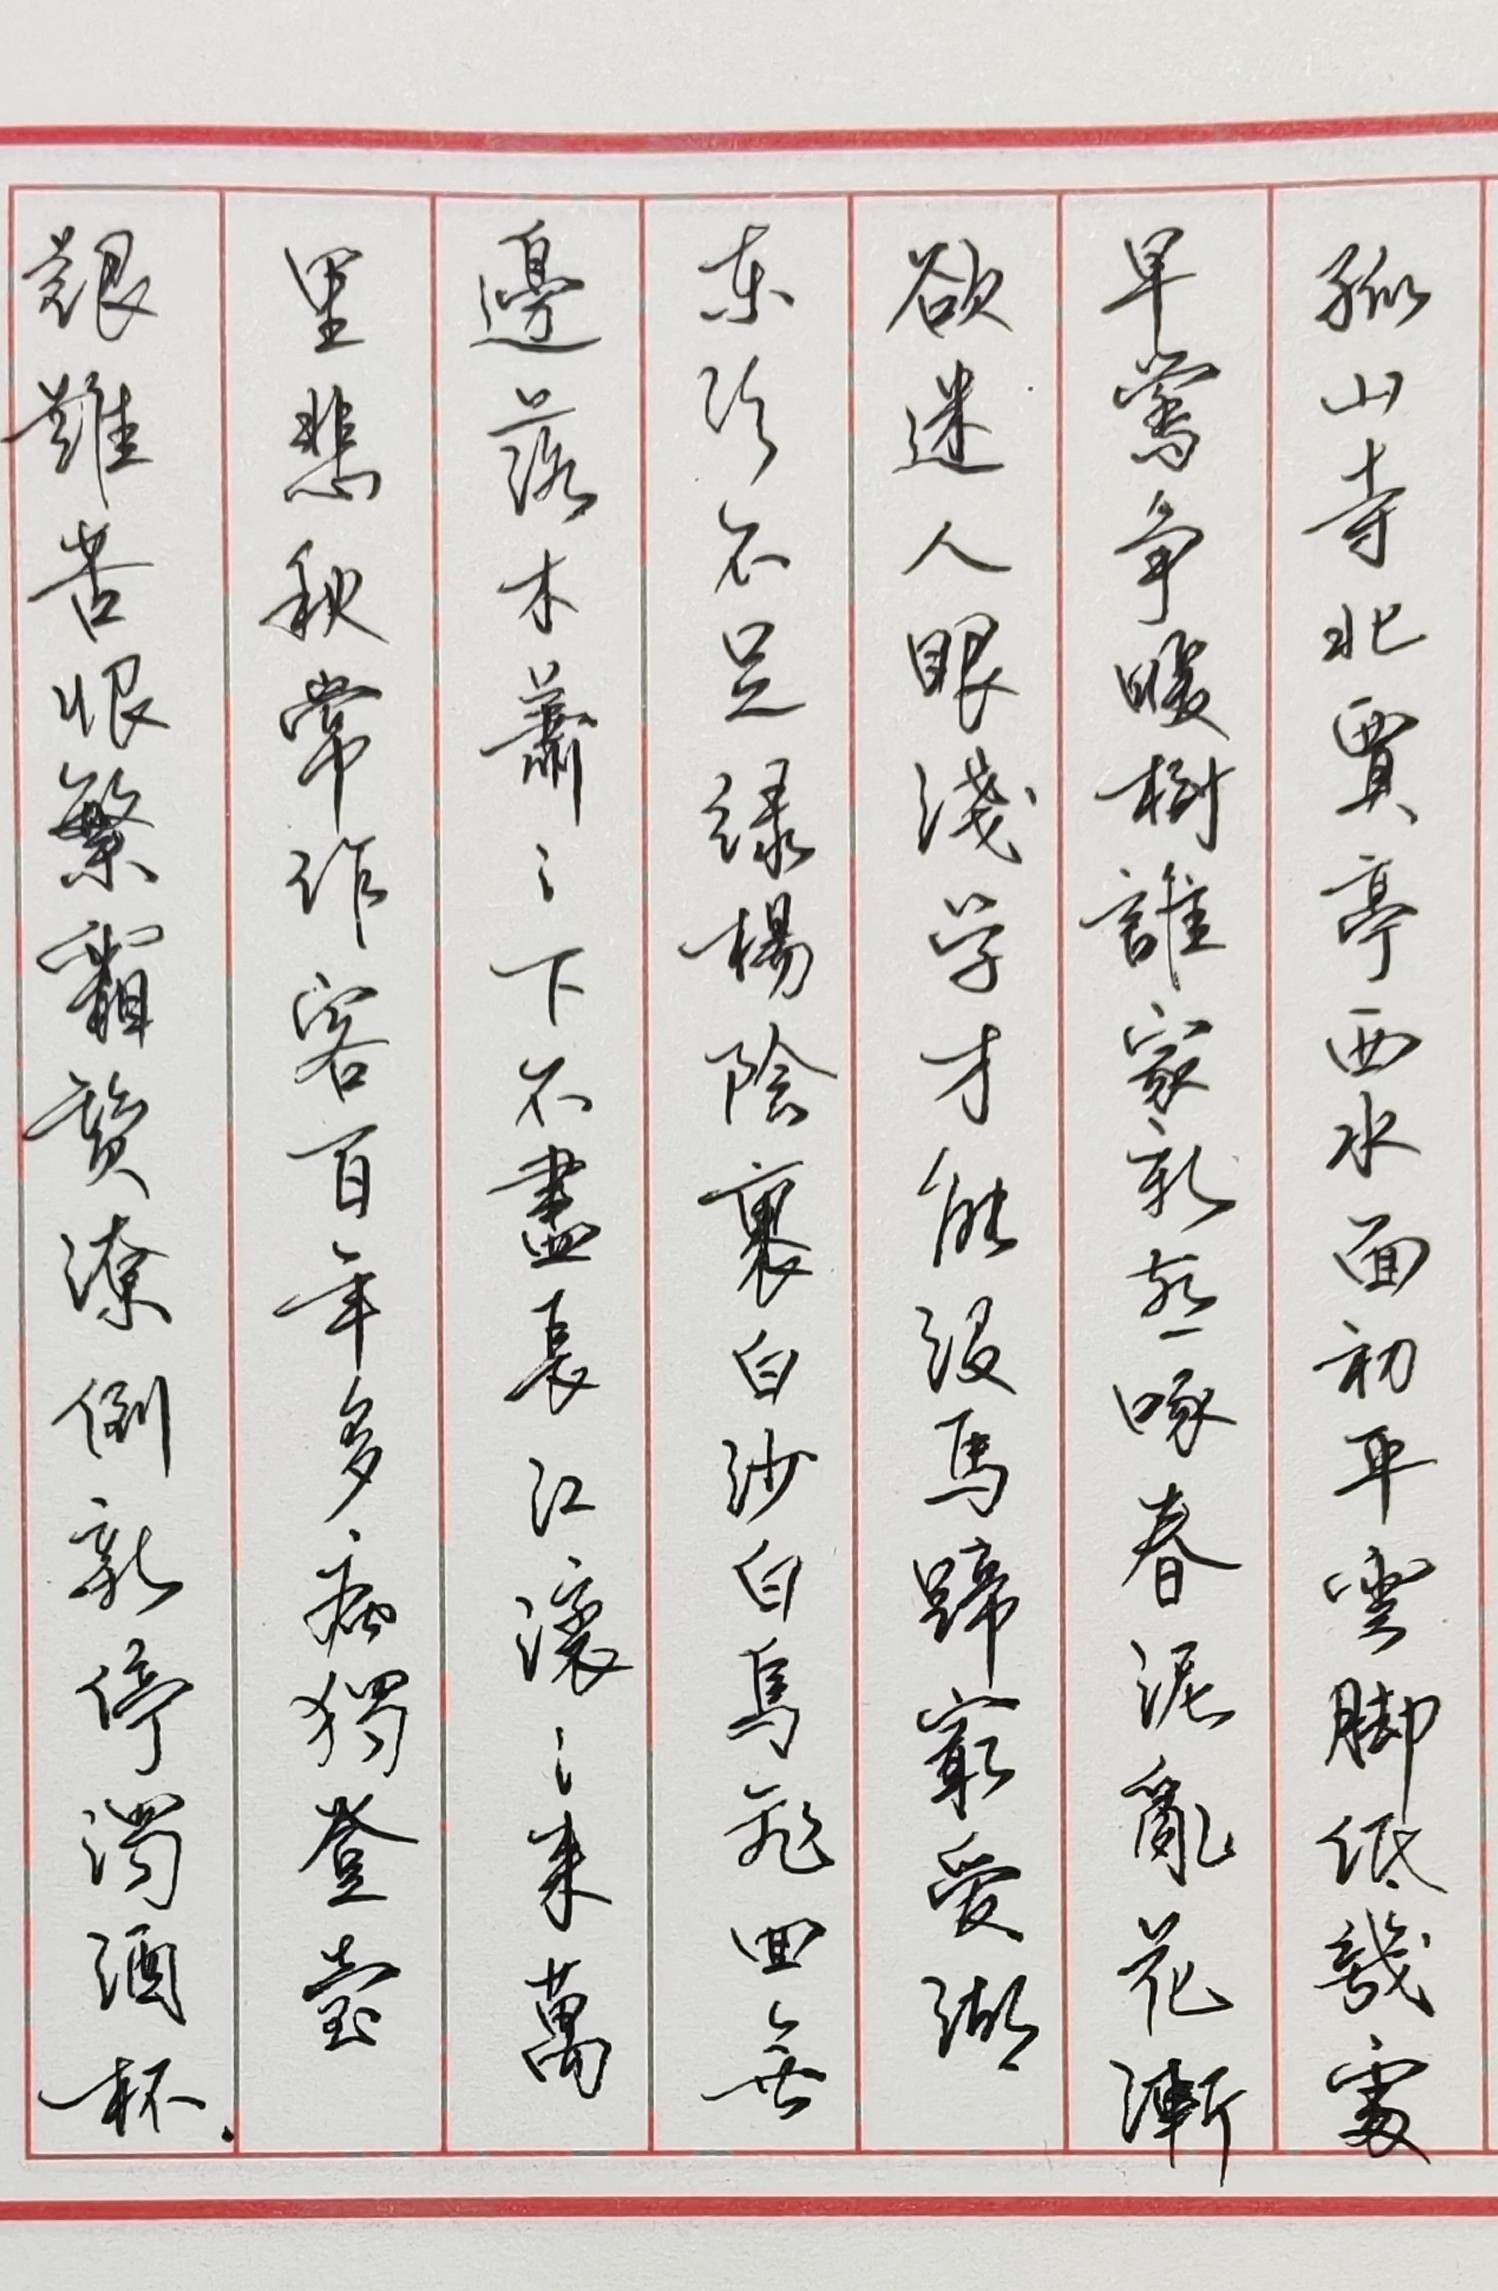 孤山寺北賈亭西水面初平雲脚低幾處
早鶯争暖樹誰家新燕啄春泥亂花漸
欲迷人眼淺草才能没馬蹄冣愛湖
東行不足緑楊陰裏白沙白鳥飛回無
邊落木蕭〻下不盡長江滚〻来萬
里悲秋常作客百年多病獨登臺
艱難苦恨繁霜鬢潦倒新停濁酒杯.